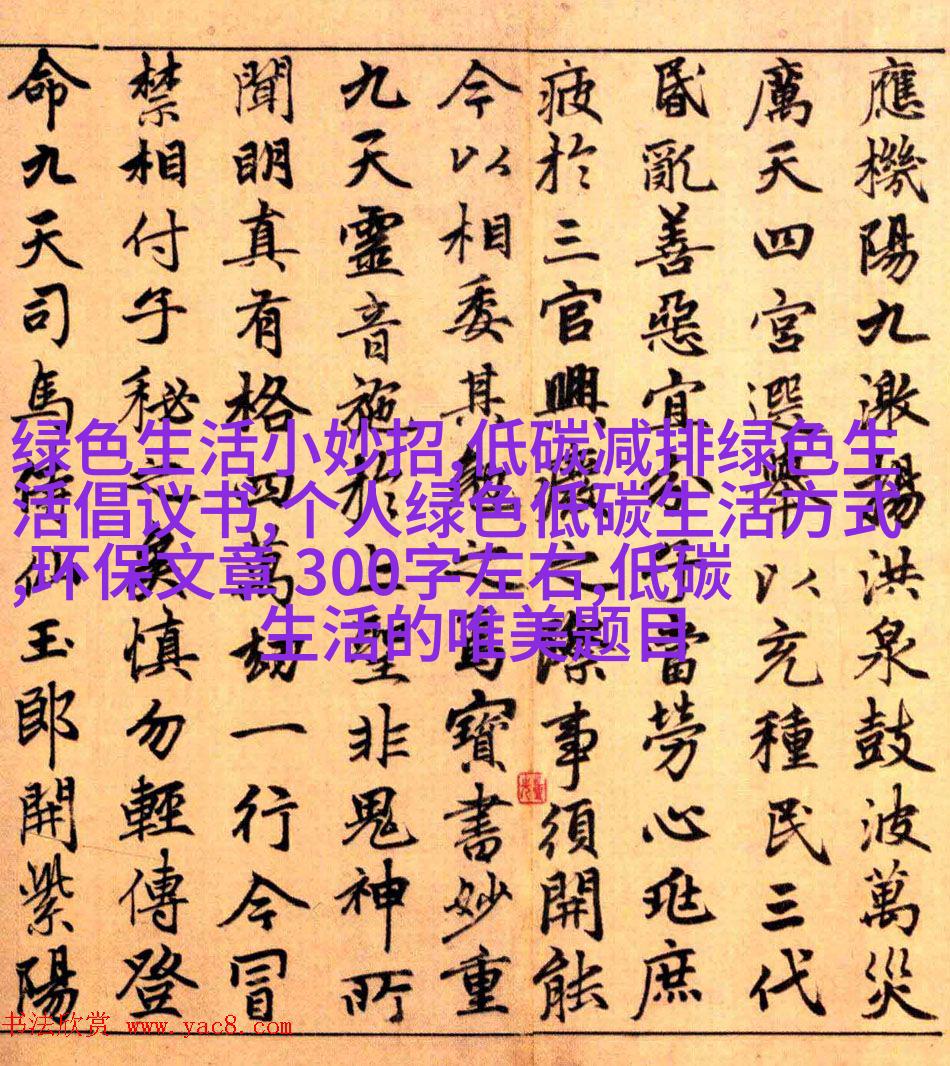 應機陽九激揚洪泉鼓波萬災
厲天四宮選舉以充種民三代
昏亂善惡宜分子當勞心庶
疲於三官興廢之際事須開能
今以相委其之焉寶書妙重
九天靈音施於上聖非鬼神所
聞明真有格四萬劫一行今冒
禁相付子秘之矣慎勿輕傳登
命九天司馬侍仙玉郎開紫陽
绿色生活小妙招,低碳减排绿色生
活倡议书,个人绿色低碳生活方式
,环保文章 300字左右,低碳
生活的唯美题目
书法欣赏 www.yac8.com